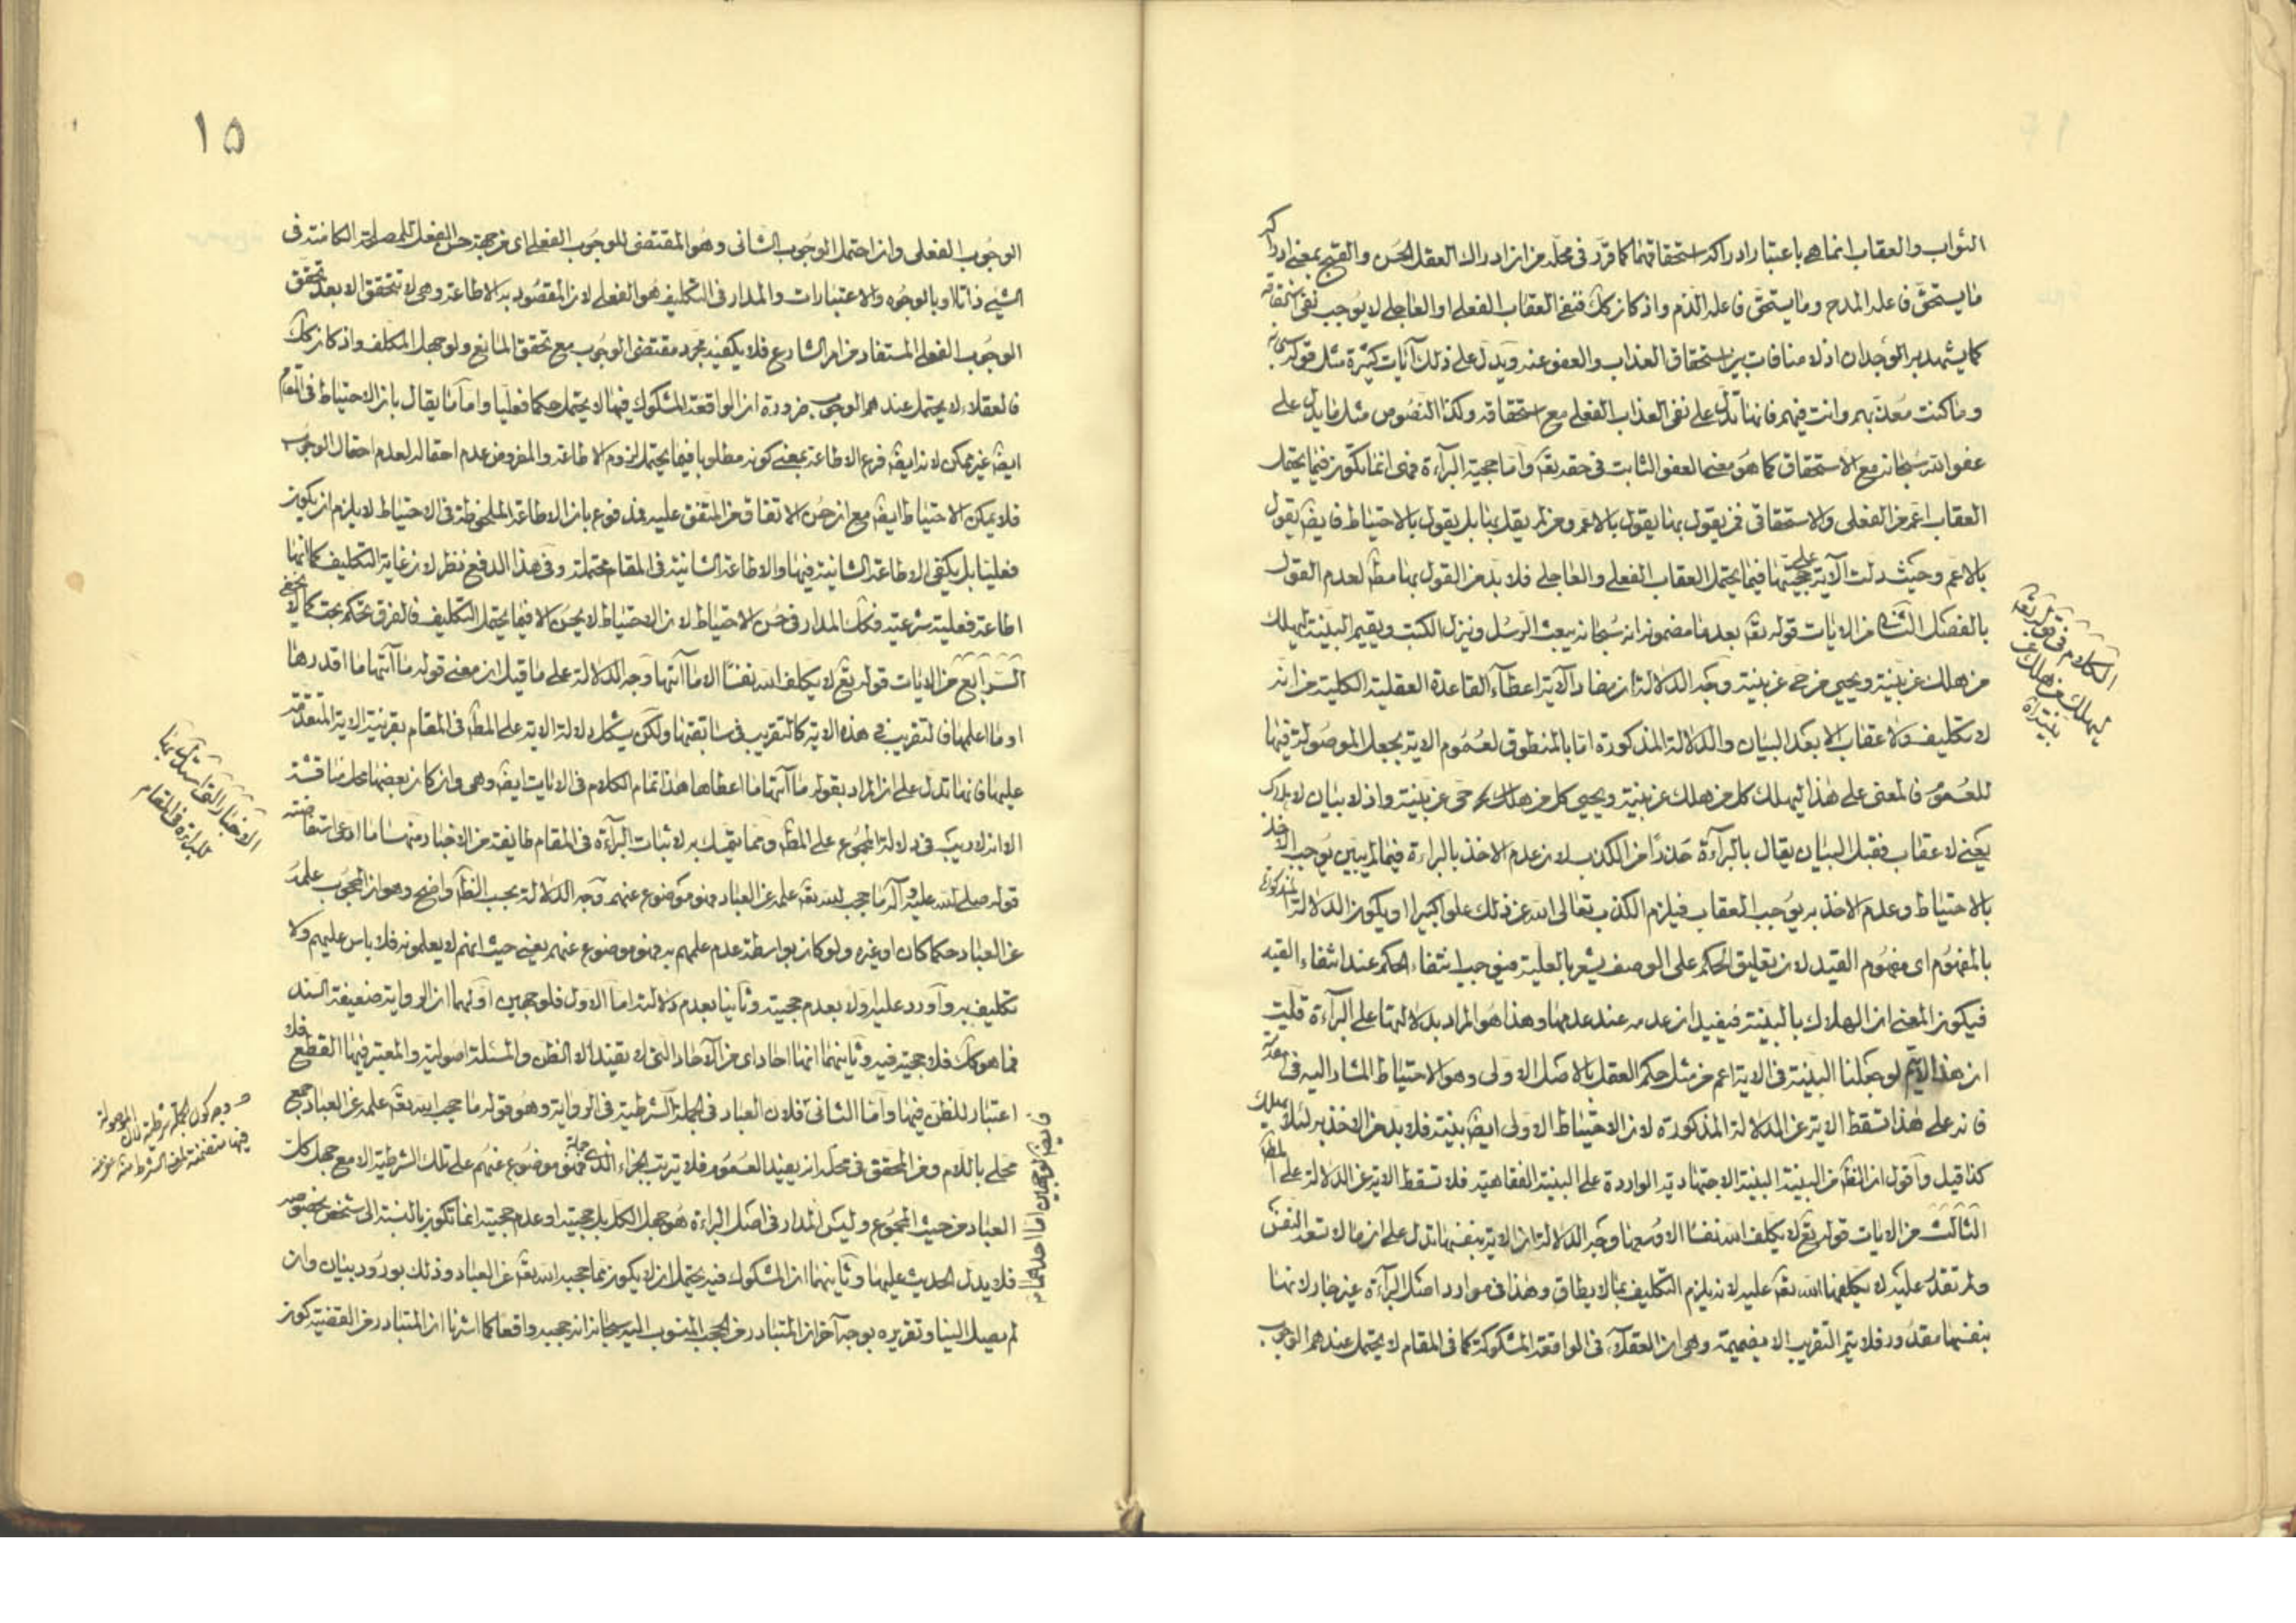 الثواب والعقاب انما هی باعتبار ادراکه استحقاقهما کما قرر فی محله من ان ادراک العقل الحسن والقبح بمعنی ادراکه
ما یستحق فاعله المدح وما یستحق فاعله الذم واذ کان کک فنفی العقاب الفعلی او العاجلی لا یوجب نفی استحقاقه
کما یشهد به الوجدان اذ لا منافات بین استحقاق العذاب والعفو عنه ویدل علی ذلک آیات کثیرة مثل قوله
وما کنت معذبهم وانت فیهم فانها تدل علی نفی العذاب الفعلی مع استحقاقه وکذا النصوص مثل ما یدل علی
عفو الله سبحانه مع الاستحقاق کما هو معنی العفو الثابت فی حقه تعٓ واما حجیة البرآءة فهی انما یکون فیما یحتمل
العقاب اعم من الفعلی والاستحقاقی فمن یقول بها یقول بالاعم ومن لم یقل بها بل یقول بالاحتیاط فایضٓ یقول
بالاعم وحیث دلت الآیة علی حجیتها فیما یحتمل العقاب الفعلی والعاجلی فلا بد من القول بها مطٓ لعدم القول
بالفصل الثانی من الایات قوله تعٓ بعد ما مضمونه انه سبحانه یبعث الرسل وینزل الکتب ویقیم البینة لیهلک
من هلک عن بینة ویحیی من حی عن بینة وجه الدلالة ان مفاد الآیة اعطآء القاعدة العقلیة الکلیة من انه
لا تکلیف ولا عقاب الا بعد البیان والدلالة المذکورة اما بالمنطوق لعموم الایة بجعل الموصولة فیها
للعموم فالمعنی علی هذا لیهلک کل من هلک عن بینة ویحیی کل من حی عن بینة واذ لا بیان لا هلاک
یعنی لا عقاب فقبل البیان یقال بالبرآءة حذرا من الکذب لان عدم الاخذ بالبراءة فیما لم یبین یوجب الاخذ
بالاحتیاط وعدم الاخذ به یوجب العقاب فیلزم الکذب تعالی الله عن ذلک علوا کبیرا او یکون الدلالة المذکورة
بالمفهوم ای مفهوم القید لان تعلیق الحکم علی الوصف یشعر بالعلیة فیوجب انتفاء الحکم عند انتفاء القید
فیکون المعنی ان الهلاک بالبینة فیفید ان عدمه عند عدمها وهذا هو المراد بدلالتها علی البرآءة قلت
ان هذا لایتم لو جعلنا البینة فی الایة اعم من مثل حکم العقل بالاصل الاولی وهو الاحتیاط المشار الیه فی
فانه علی هذا تسقط الایة عن الدلالة المذکورة لان الاحتیاط الاولی ایضٓ بینة فلا بد من الاخذ به لئلا یهلک
کذا قیل واقول ان الظٓ من البینة البینة الاجتهادیة الواردة علی البینة الفقاهیة فلا تسقط الایة عن الدلالة علی المطٓ
الثالث من الایات قوله تعٓ لا یکلف الله نفسا الا وسعها وجه الدلالة ان الایة بنفسها تدل علی ان ما لا تسعه النفس
ولم تقدر علیه لا یکلفها الله تعٓ علیه لانه یلزم التکلیف بما لا یطاق وهذا فی موارد اصل البرآءة غیر جار لانها
بنفسها مقدور فلا یتم التقریب الا بضمیمة وهی ان العقلآء فی الواقعة المشکوکة کما فی المقام لا یحتمل عندهم الوجوب
الکلام فی قوله تعٓ
لیهلک من هلک عن
بینة الآیة
۱۵
الوجوب الفعلی وان احتمل الوجوب الشانی وهو المقتضی للوجوب الفعلی ای من جهة حسن الفعل للمصلحة الکامنة فی
الشیء ذاتا او بالوجوه والاعتبارات والمدار فی التکلیف هو الفعلی لان المقصود به الاطاعة وهی لا تتحقق الا بعد تحقق
الوجوب الفعلی المستفاد من امر الشارع فلا یکفیه مجرد مقتضی الوجوب مع تحقق المانع ولو جهل المکلف واذ کان کک
فالعقلاء لا یحتمل عندهم الوجوب ضرورة ان الواقعة المشکوک فیها لا یحتمل حکما فعلیا واما ما یقال بان الاحتیاط فی المقام
ایضٓ غیر ممکن لانه ایضٓ فرع الاطاعة بمعنی کونه مطلوبا فیما یحتمل لزوم الاطاعة والمفروض عدم احتماله لعدم احتمال الوجوب
فلا یمکن الاحتیاط ایضٓ مع ان حسن الاتفاق من المتفق علیه فمدفوع بان الاطاعة الملحوظة فی الاحتیاط لا یلزم ان یکون
فعلیا بل یکفی الاطاعة الشانیة فیها والاطاعة الشانیة فی المقام محتملة وفی هذا الدفع نظر لان غایة التکلیف کما انها
اطاعة فعلیة شرعیة فکک المدار فی حسن الاحتیاط لان الاحتیاط لا یحسن الا فیما یحتمل التکلیف فالفرق تحکم بحت کما لا یخفی
الرابع من الایات قوله تعٓ لا یکلف الله نفسا الا ما آتیها وجه الدلالة علی ما قیل ان معنی قوله ما آتیها ما اقدرها
او ما اعلمها فالتقریب فی هذه الایة کالتقریب فی سابقتها ولکن یشکل دلالة الایة علی المطٓ فی المقام بقرینة الایة المتقدمة
علیها فانها تدل علی ان المراد بقوله ما آتیها ما اعطاها هذا تمام الکلام فی الایات ایضٓ وهی وان کان بعضها محل مناقشة
الا انه لا ریب فی دلالة المجموع علی المطٓ ومما یتمسک به لاثبات البرآءة فی المقام طایفة من الاخبار منها ما ادعی استفاضته
قوله صلی الله علیه وآله ما حجب الله تعٓ علمه عن العباد فهو موضوع عنهم وجه الدلالة بحسب الظٓ واضح وهو ان المحجوب علمه
عن العباد حکما کان او غیره ولو کان بواسطة عدم علمهم به فهو موضوع عنهم یعنی حیث انهم لا یعلمونه فلا باس علیهم ولا
تکلیف به واورد علیه اولا بعدم حجیته وثانیا بعدم دلالته اما الاول فلوجهین اولهما ان الروایة ضعیفة السند
فما هو کک فلا حجیة فیه وثانیهما انها احاد ای من الآحاد التی لا یفید الا الظن والمسئلة اصولیة والمعتبر فیها القطع فلا
اعتبار للظن فیها واما الثانی فلان العباد فی الجملة الشرطیة فی الروایة وهو قوله ما حجب الله تعٓ علمه عن العباد جمع
محلی باللام ومن المحقق فی محله انه یفید العموم فلا ترتب الجزاء الذی جملة فهو موضوع عنهم علی تلک الشرطیة الا مع جهل کل
العباد من حیث المجموع ولیس المدار فی اصل البراءة هو جهل الکل بل حجیته او عدم حجیته انما تکون بالنسبة الی شخص بخصوصه
فلا یدل الحدیث علیها وثانیهما ان المشکوک فیه یحتمل ان لا یکون مما حجبه الله تعٓ عن العباد وذلک بورود بیان وان
لم یصل الینا وتقریره بوجه آخر ان المتبادر من الحجب المنسوب الیه سبحانه انه حجبه واقعا کما اشرنا ان المتبادر من القضیة کون
الاخبار التی استدل بها
للبراءة فی المقام
وجه کون الجملة شرطیة لان الموصولة
فیها متضمنة لمعنی الشرط
فایضٓ لوجهین اما احدهما